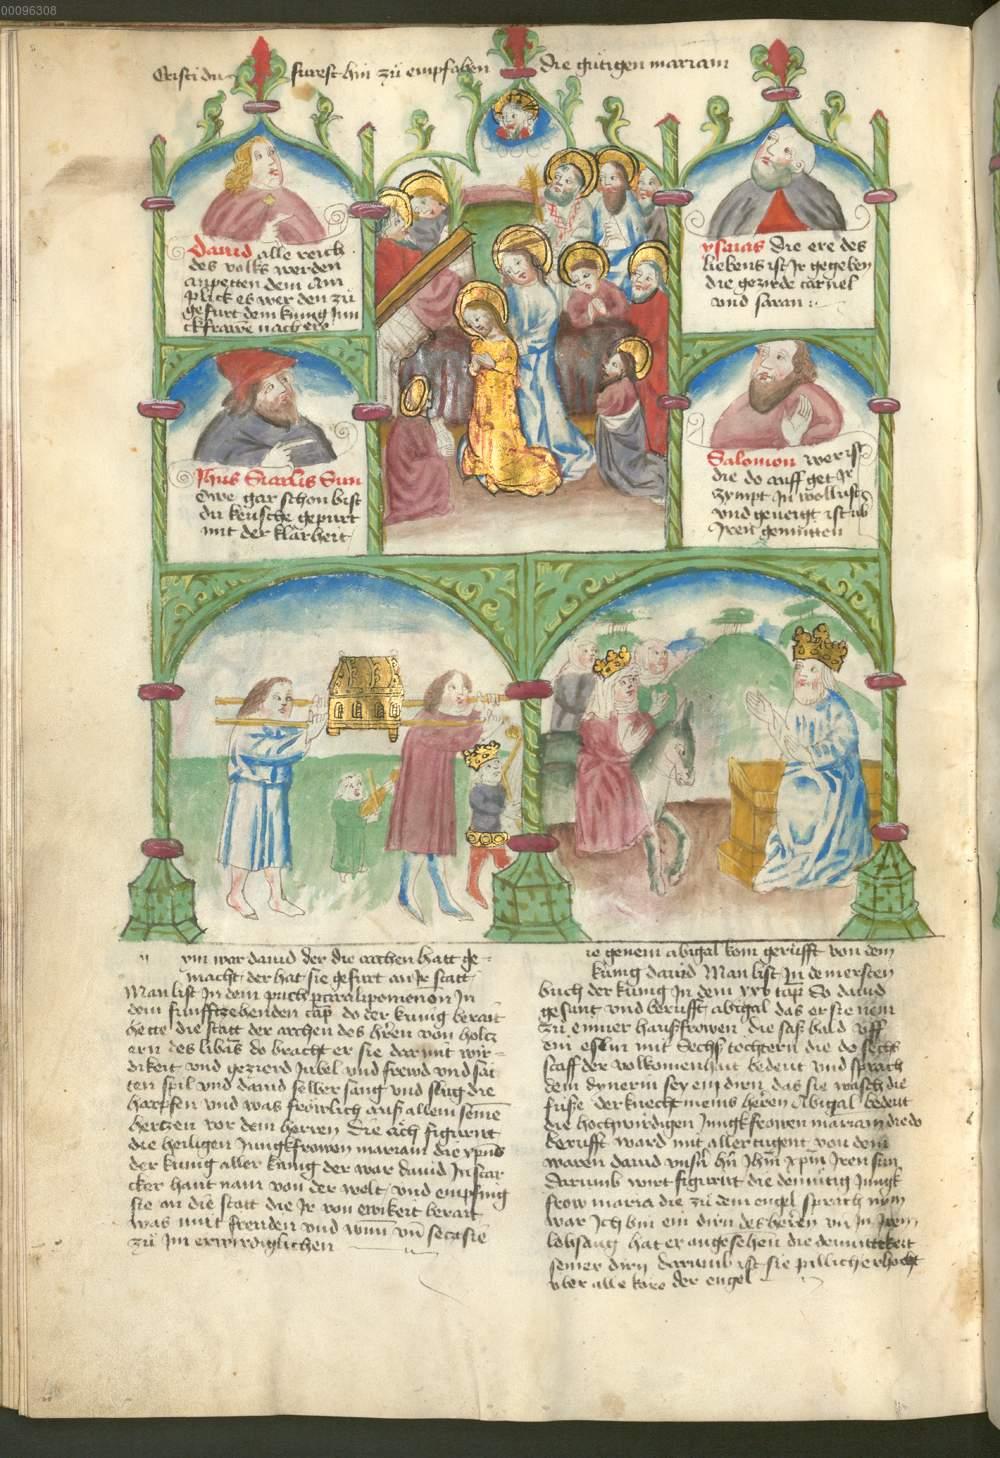 00096308
Cristi du furest hin zü empfahen die gütigen mariam
Dauid alle reich
des volks werden
anpetten dein an
plick es wer den zü
gefurt dem kung jun
ckfrawe nach ere
ysaias die ere des
liebens ist Jr gegeben
die gezirde carmel
und saran :
Jhus Sun
Owe gar schon bist
du keusche gepurt
mit der klarheit
Salomon wer ist
die do auff get Jr
zympt in wollust
vnd geneigt ist ub
Jren gemütten
war dauid der die archen hatt ge-
macht der hat sie gefurt an Jr statt
Man list Jn dem puch paralipomenon Jn
dem funfftzehenden cap do der kunig berait
hette die statt der archen des heren von holtz
ern des libans do bracht er sie dar mit wir-
dikeit vnd gezierd Jubel vnd frewd vnd sai
ten spil vnd dauid selber sang vnd slug die
harpfen vnd was frölich auß allem seinem
hertzen vor dem herren Die arch figurirt
die heiligen Jungkfrowen mariam die
der kunig aller kunig der war dauid Jn star
cker hant nam von der welt vnd empfing
sie an die statt die Jr von ewikeit berait
was mit freuden vnd vnd
zü Jm erwirdiglichen
genem abigal kom gerüfft von dem
künig dauid Man list Jn dem ersten
buch der kunig Jn dem xxv cap So dauid
gesant vnd berufft abigal das er sie nem
zü einner haußfrowen die saß bald vff
ein eslin mit Sechs tochtern die do sechs
staff der volkomenheit bedeut vnd sprach
dein dynerin sey ein dirn das sie wasch die
füße der knecht meins heren Abigal bedeut
die hochwirdigen Jungkfrowen mariam die do
berufft ward mit aller tugent von dem
waren dauid vnsern hern Jren sun
Darumb wirt figurirt die demütig Jungk
frow maria die zü dem engel sprach nym
war Jch bin ein dirn des heren vn in Jrem
lobsang hat er angesehen die demutikeit
seiner dirn darumb ist sie pillich erhocht
vber alle kore der engel